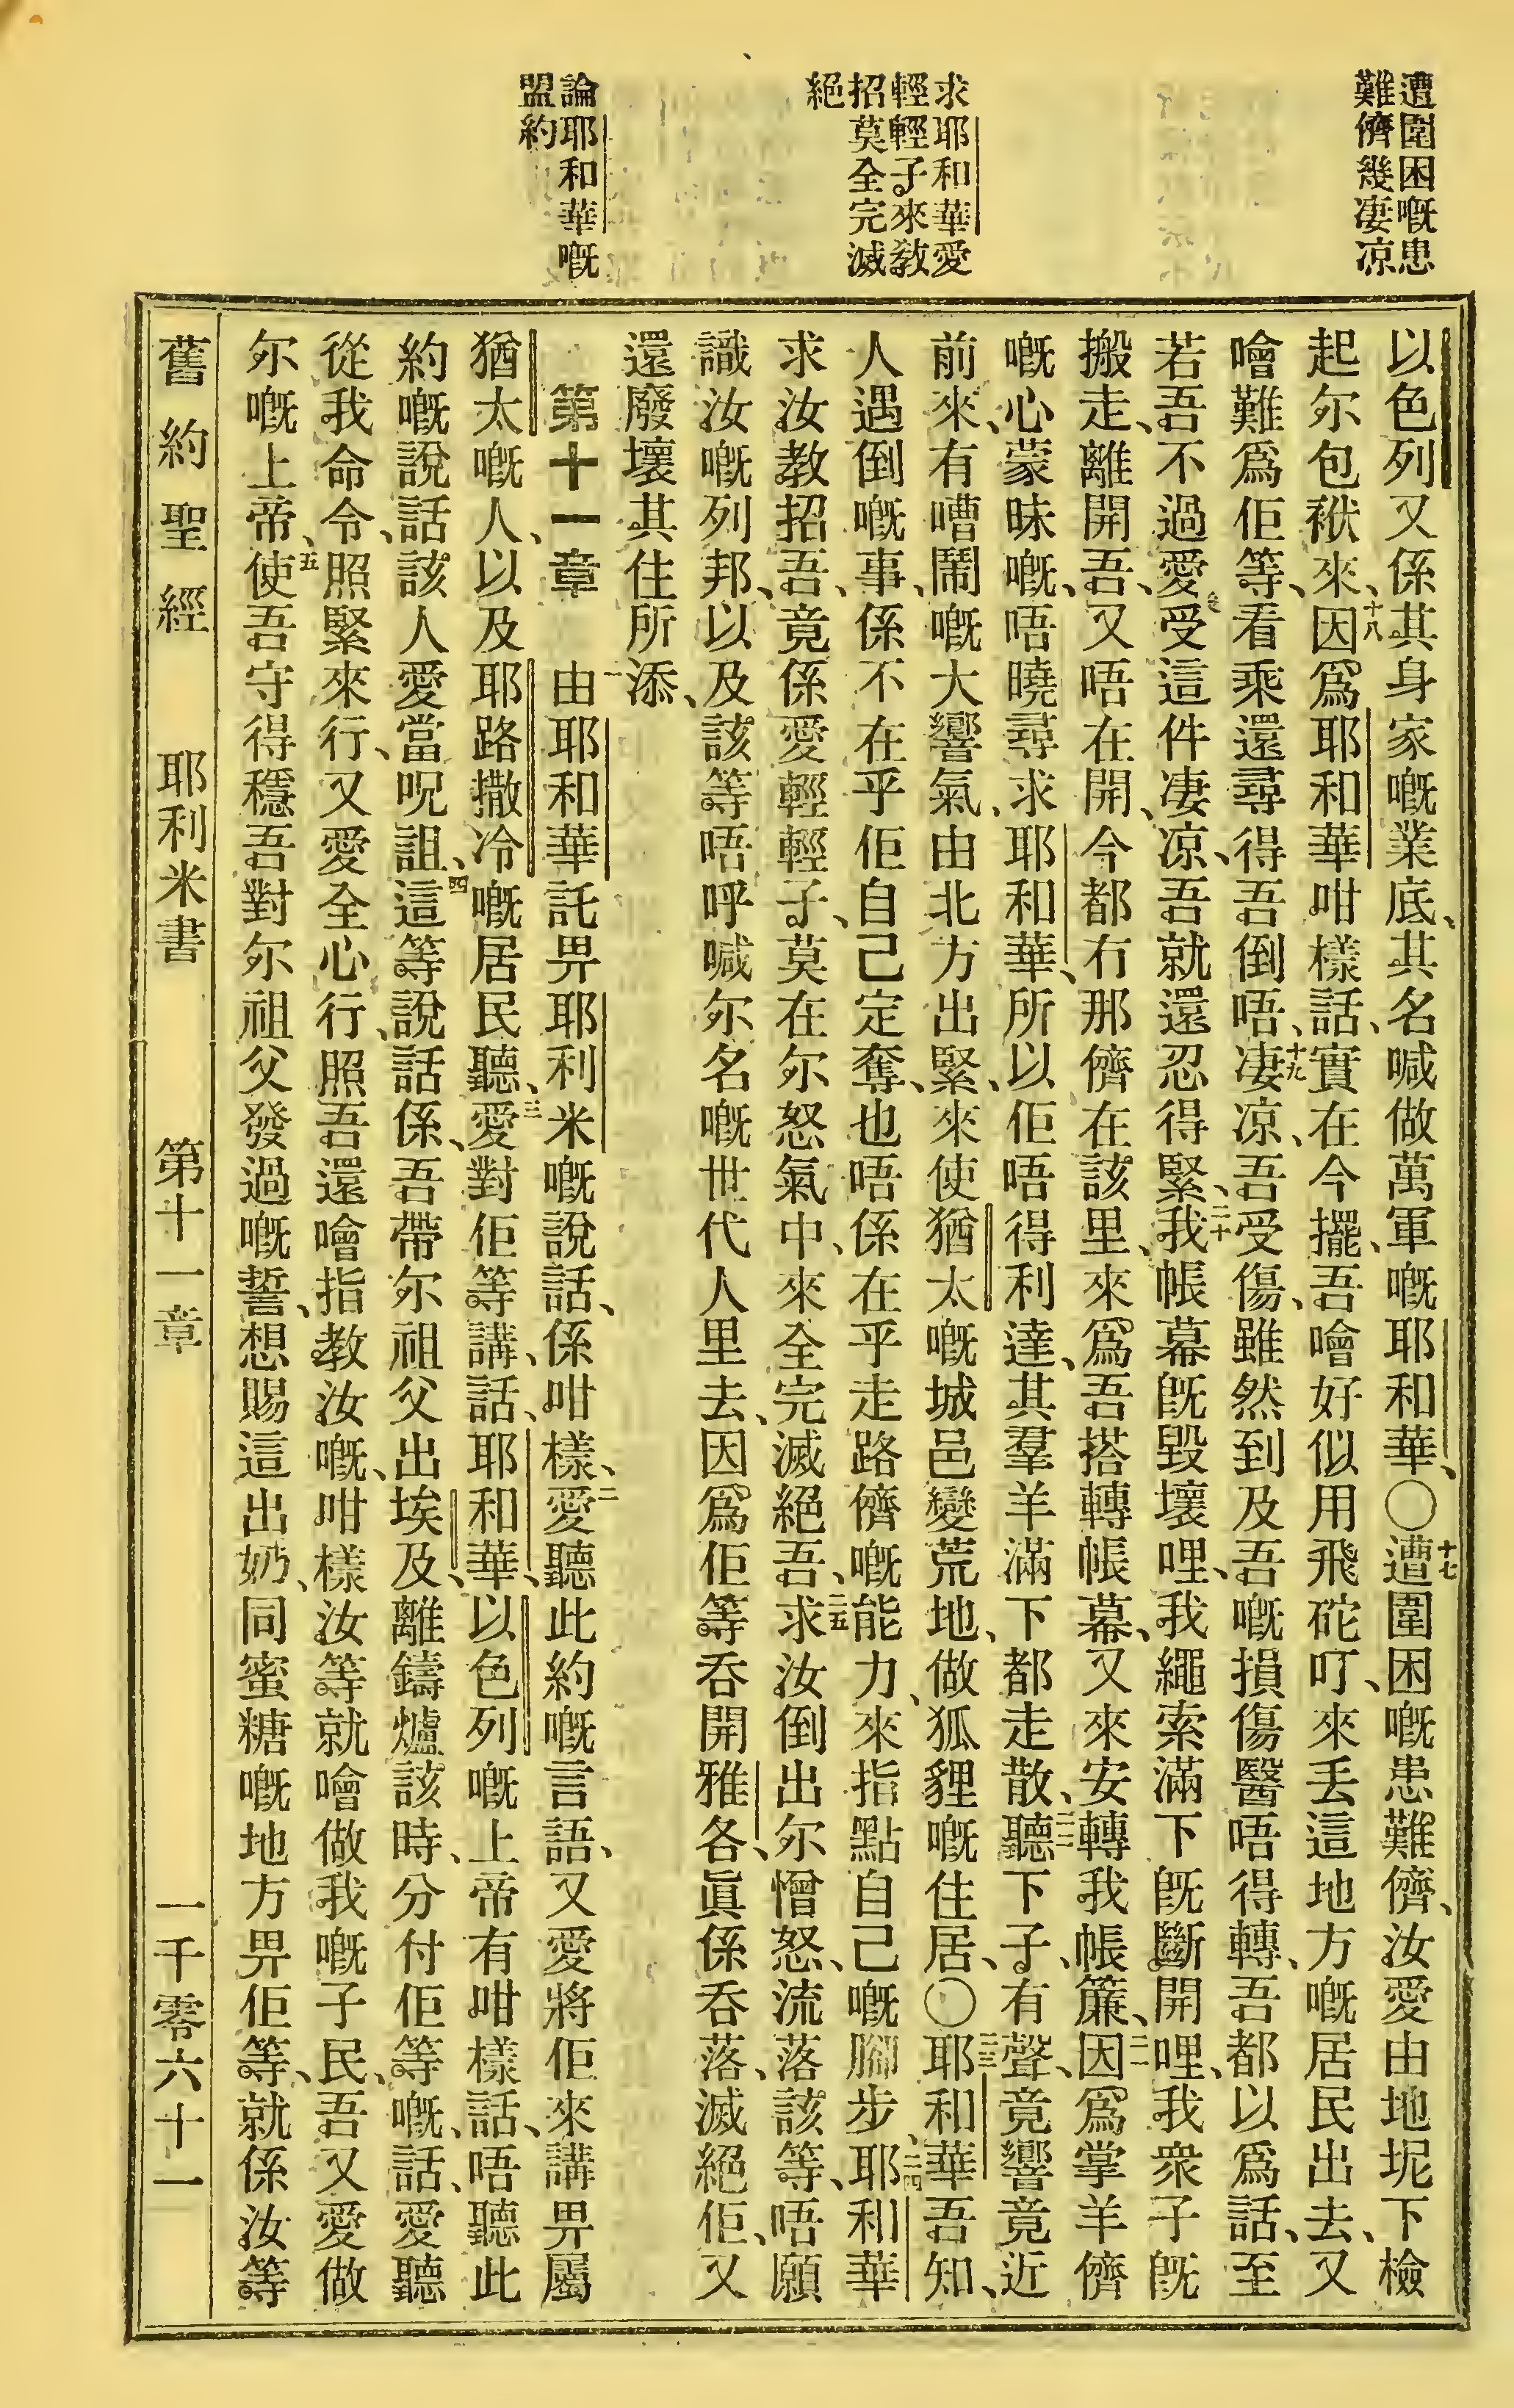 遭圍困嘅患
難儕幾凄凉
求耶和華愛
輕輕子來教
招莫全完滅
絕
論耶和華嘅
盟約
以色列又係其身家嘅業底、其名喊做萬軍嘅耶和華、〇十七遭圍困嘅患難儕、汝愛由地坭下檢
起尔包袱來、十八因爲耶和華咁樣話、實在今擺、吾噲好似用飛砣叮、來丢這地方嘅居民出去、又
噲難爲佢等、看乘還尋得吾倒唔、十九凄凉、吾受傷、雖然到及吾嘅損傷醫唔得轉、吾都以爲話、至
若吾不過愛受這件凄凉、吾就還忍得緊、二十我帳幕旣毀壞哩、我繩索滿下旣斷開哩、我衆子旣
搬走、離開吾、又唔在開、今都冇那儕在該里、來爲吾搭轉帳幕、又來安轉我帳簾、二一因爲掌羊儕
嘅心蒙昧嘅、唔曉尋求耶和華、所以佢唔得利達、其羣羊滿下都走散、二二聽下子、有聲、竟響竟近
前來、有嘈鬧嘅大響氣、由北方出緊、來使猶太嘅城邑變荒地、做狐貍嘅住居、〇二三耶和華吾知、
人遇倒嘅事、係不在乎佢自己定奪、也唔係在乎走路儕嘅能力、來指點自己嘅腳步、二四耶利華
求汝教招吾、竟係愛輕輕子、莫在尔怒氣中、來全完滅絕吾、二五求汝倒出尔憎怒、流落該等、唔願
識汝嘅列邦、以及該等唔呼喊尔名嘅世代人里去、因爲佢等吞開雅各、眞係吞落、滅絕佢、又
還廢壞其住所添、
第十一章　一由耶和華託畀耶利米嘅說話、係咁樣、二愛聽此約嘅言語、又愛將佢來講畀屬
猶太嘅人、以及耶路撒冷嘅居民聽、三愛對佢等講話、耶和華、以色列嘅上帝有咁樣話、唔聽此
約嘅說話該人愛當呪詛、四這等說話係、吾帶尔祖父出埃及、離鑄爐該時、分付佢等嘅、話、愛聽
從我命令、照緊來行、又愛全心行、照吾還噲指教汝嘅、咁樣汝等就噲做我嘅子民、吾又愛做
尔嘅上帝、五使吾守得穩吾對尔祖父發過嘅誓、想賜這出奶、同蜜糖嘅地方畀佢等、就係汝等
舊約聖經　耶利米書　第十一章　一千零六十一